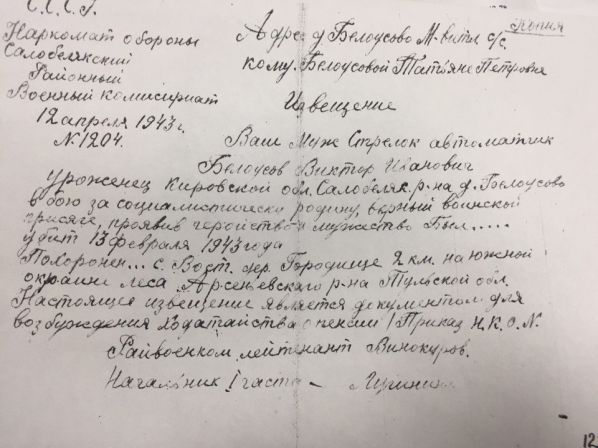 С.С.С.Р.
Копия
Наркомат обороны
Салобелякский
Районный
Военный комисириат
12 апреля 1943 г.
№ 1204.
Адрес д Белоусово М-витл с/с.
кому. Белоусовой Татьяне Петровне
Извещение
Ваш Муж Стрелок автоматчик
Белоусов Виктор Иванович
уроженец Кировской обл. Салобеляк. р-на д. Белоусово
в бою за социалистически родину, верный воинской
присяге, проявив геройство и мужество Был.....
убит 13 февраля 1943 года
Похоронен... с. Вост. дер. Городище 2 км. на южной
окраине леса Арсеньевского р-на Тульской обл.
Настоящее извещение является документом для
возбуждения ходатайства о пенсии / Приказ Н.К.О.N.
Райвоенком, лейтенант Винокуров.
Начальник I части -
12